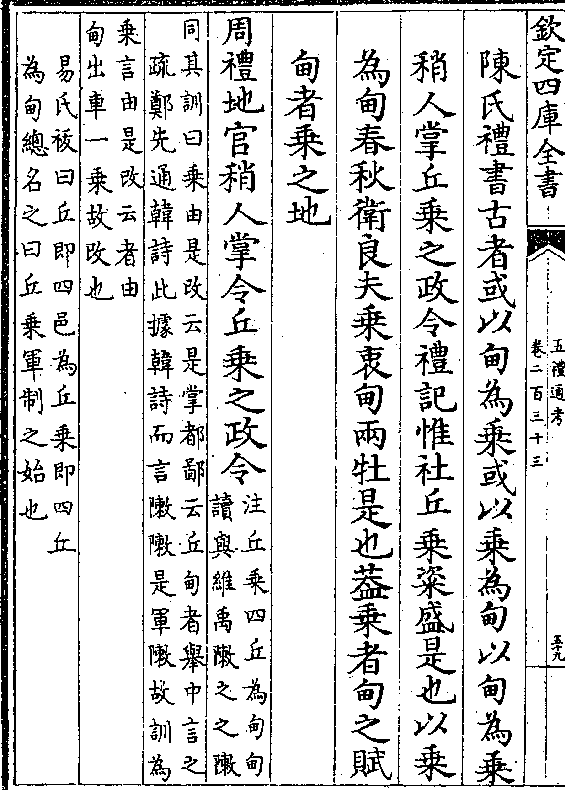 欽定四庫全書
五禮通考
卷二百三十三
五十九
陳氏禮書古者或以甸為乘或以乘為甸以甸為乘
稍人掌丘乘之政令禮記惟社丘乘粢盛是也以乘
為甸春秋衛良夫乘衷甸兩牡是也葢乘者甸之賦
甸者乘之地
周禮地官稍人掌令丘乘之政令
注丘乘四丘為甸甸
讀與維禹敶之之敶
同其訓曰乘由是改云是掌都鄙云丘甸者舉中言之
疏鄭先通韓詩此據韓詩而言敶敶是軍敶故訓為
乘言由是改云者由
甸出車一乘故改也
易氏祓曰丘即四邑為丘乘即四丘
為甸總名之曰丘乘軍制之始也